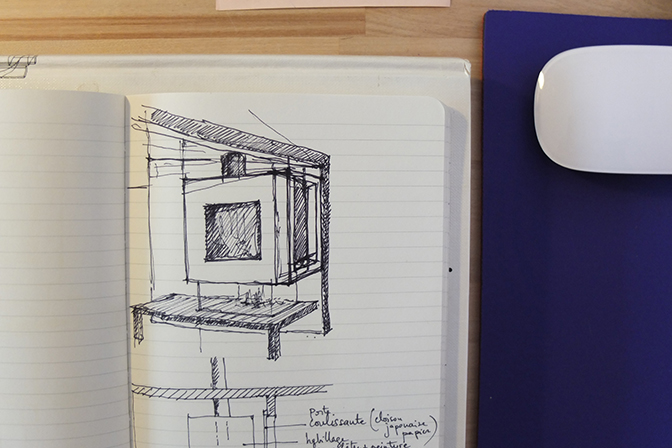 porte
coulissante (cloison
japonaise
papier)
habillage
peinture